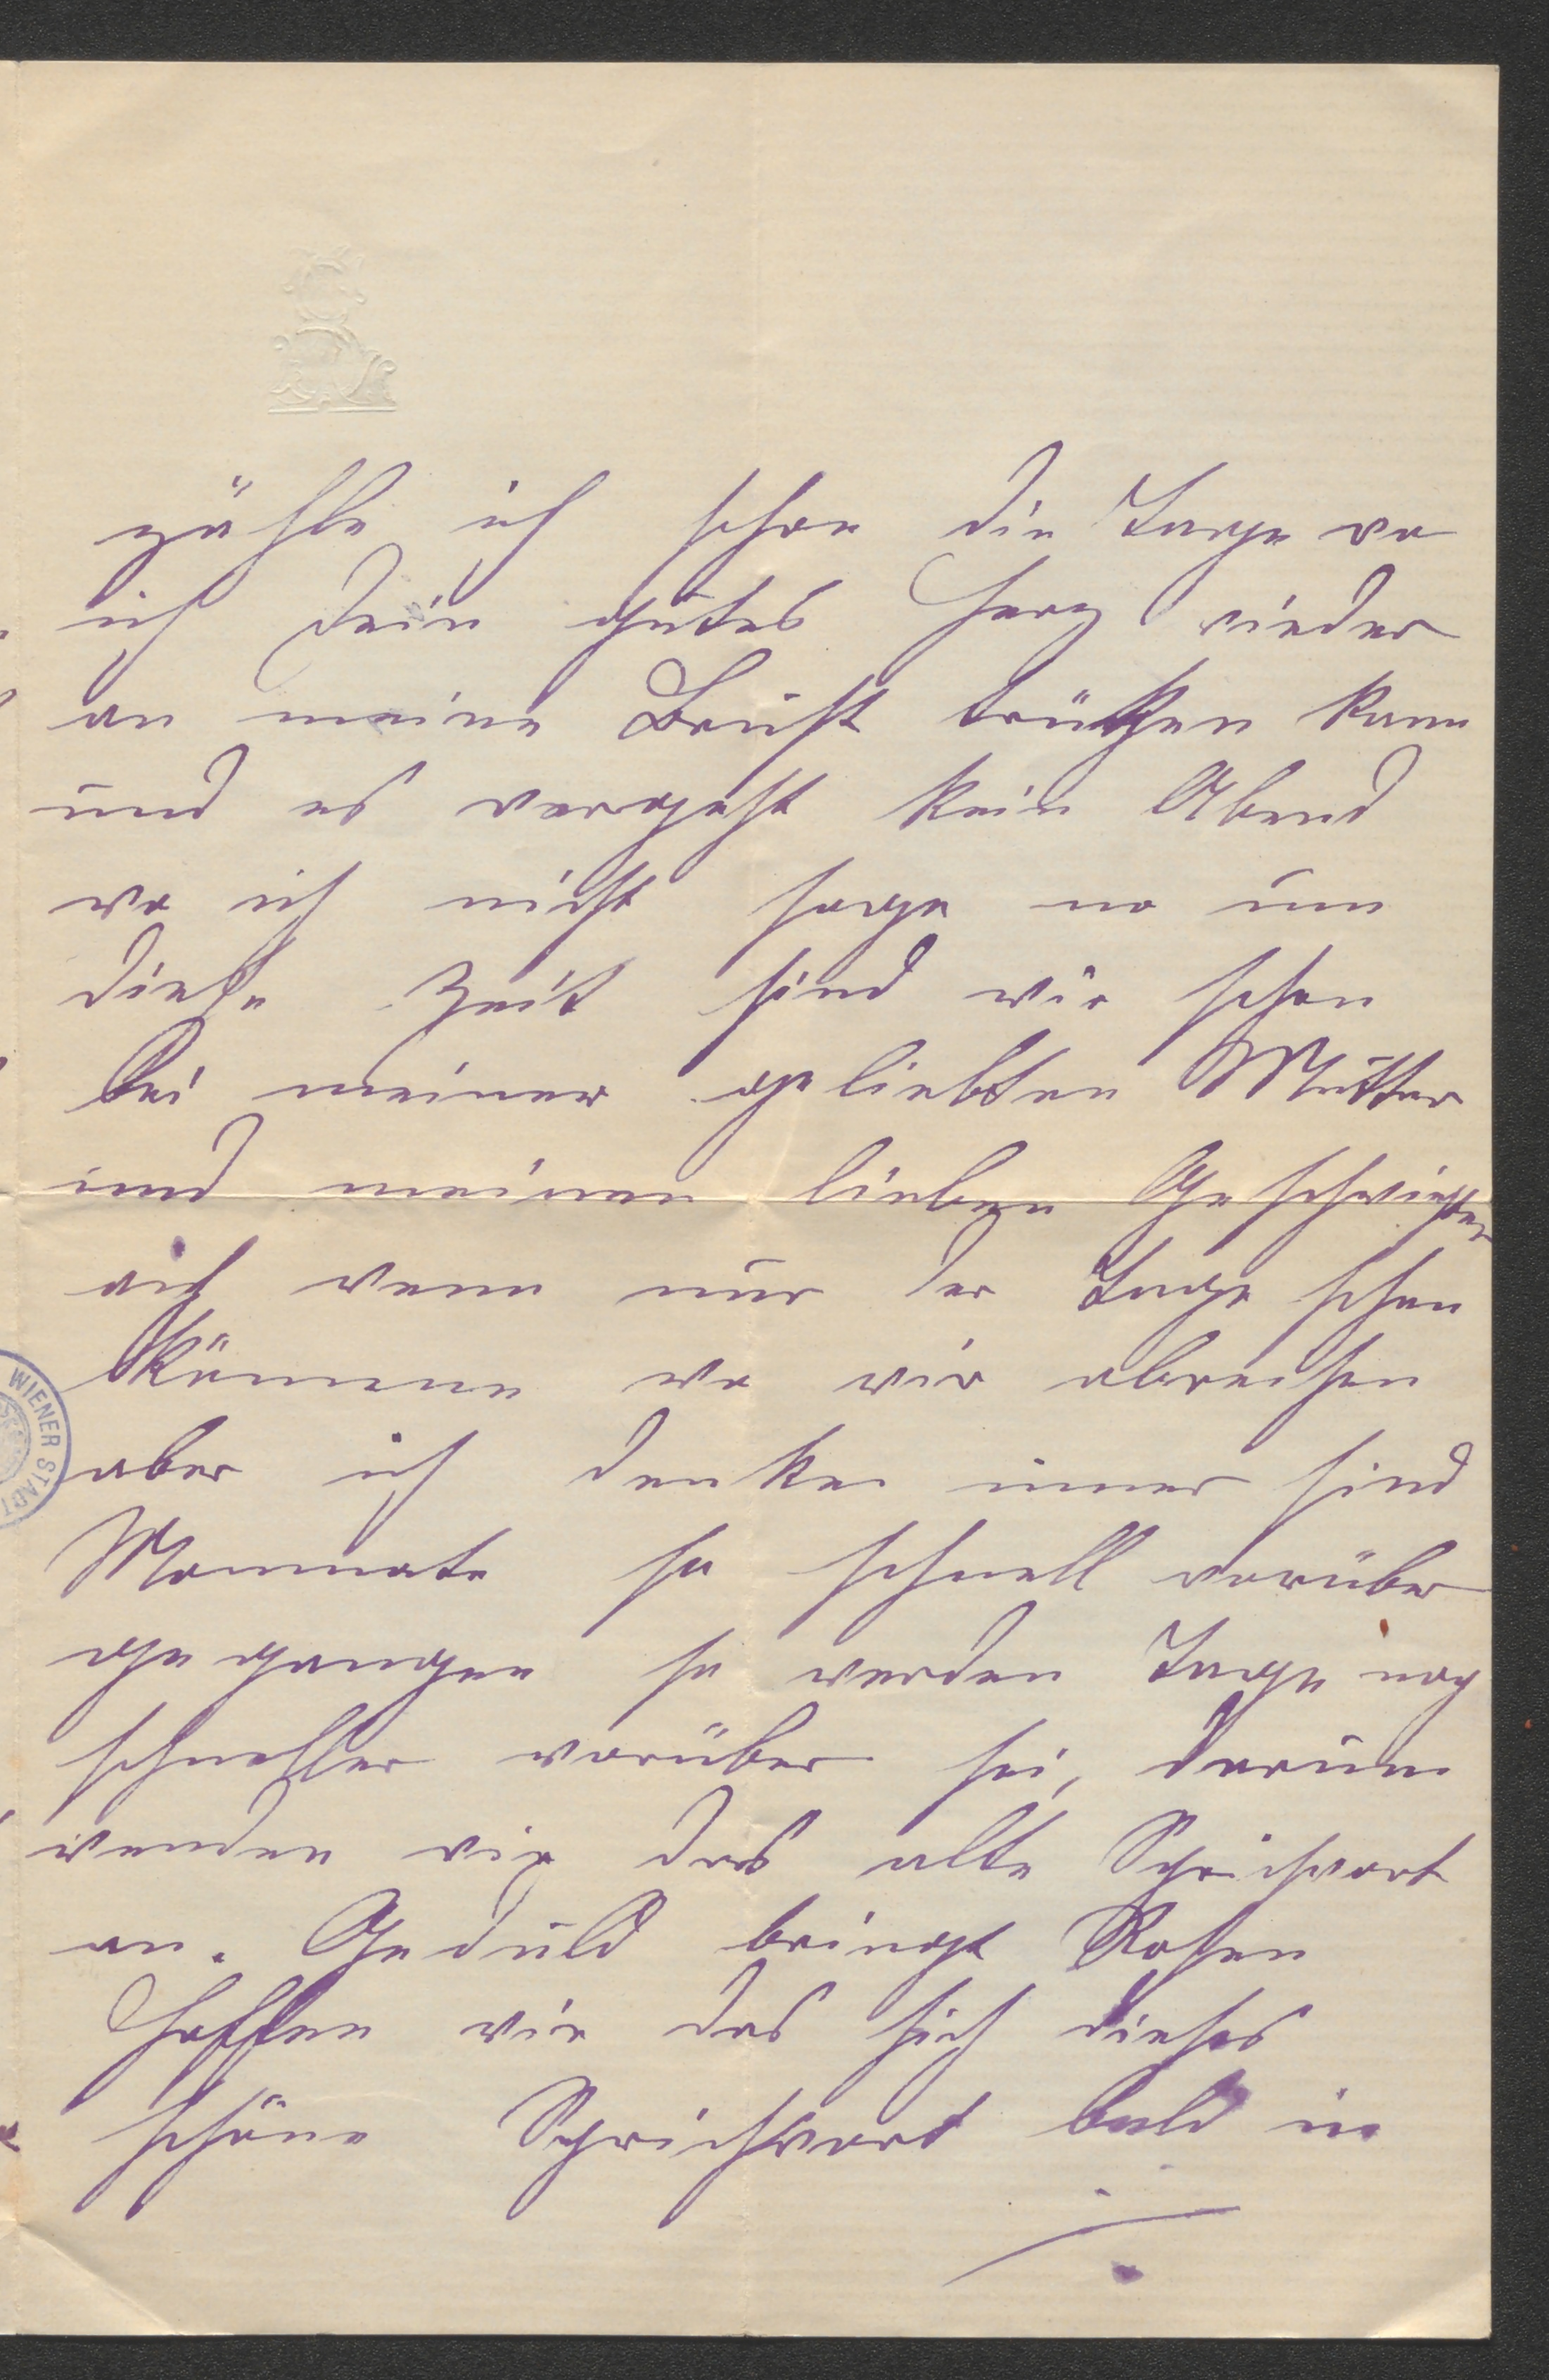 zähle ich schon die Tage wo
ich dein gutes Herz wieder
an meine Brust trücken kann
und es vergeht kein Abend
wo ich nicht sage no um
diese Zeit sind wir schon
bei meiner geliebten Mutter
und meinen lieben Geschwister
ach wenn nur der Tage schon
kämmen wo wir abreisen
aber ich denke immer sind
Monnate so schnell vorüber
gegangen so werden Tage noch
schneller vorüber sei, darum
wenden wir das alte Sprichwort
an. Geduld bringt Rosen
hoffen wir das sich dieses
schöne Sprichwort bald in
WIENER STADT